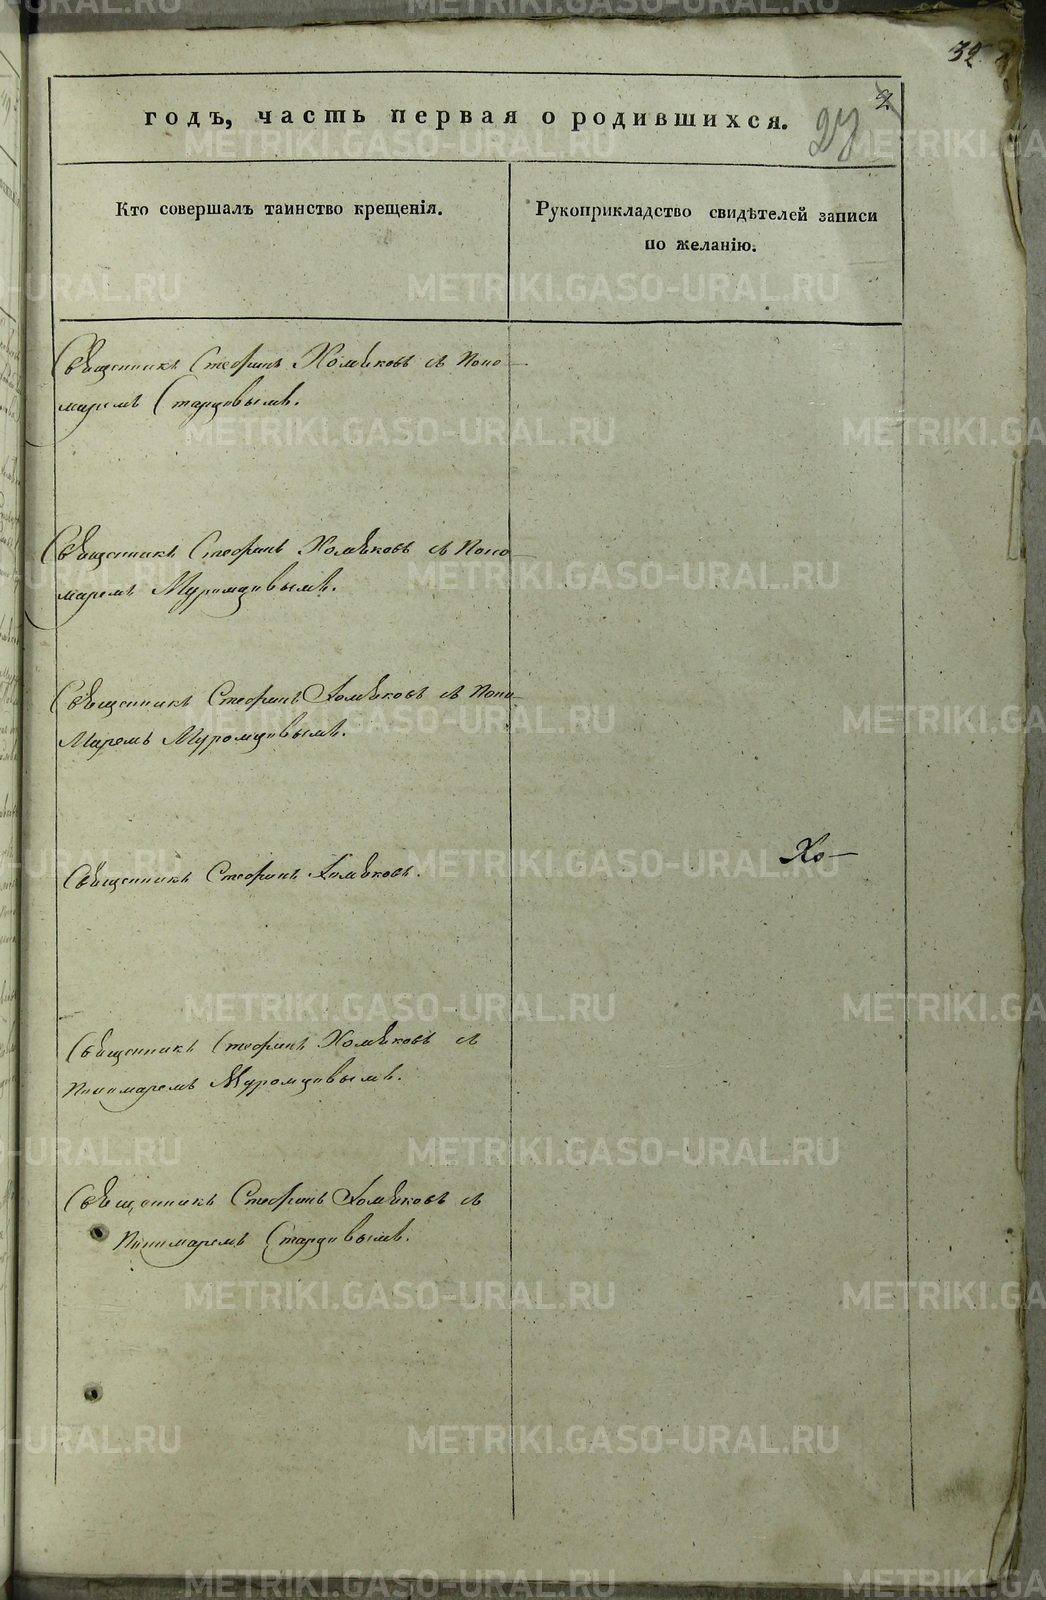 32
2
27
годъ, часть первая о родившихся.
Кто совершалъ таинство крещенія.
Рукоприкладство свидѣтелей записи
по желанію.
Священникъ Стефанъ Хомяковъ съ Поно-
маремъ Старцовымъ.
Священникъ Стефанъ Хомяковъ съ Поно-
маремъ Муромцовымъ.
Священникъ Стефанъ Хомяковъ съ Поно-
Маремъ Муромцовымъ.
Священникъ Стефанъ Хомяковъ.
Хо—
Священникъ Стефанъ Хомяковъ съ
Пономаремъ Муромцовымъ.
Священникъ Стефанъ Хомяковъ съ
Пономаремъ Старцовымъ.
METRIKI.GASO-URAL.RU